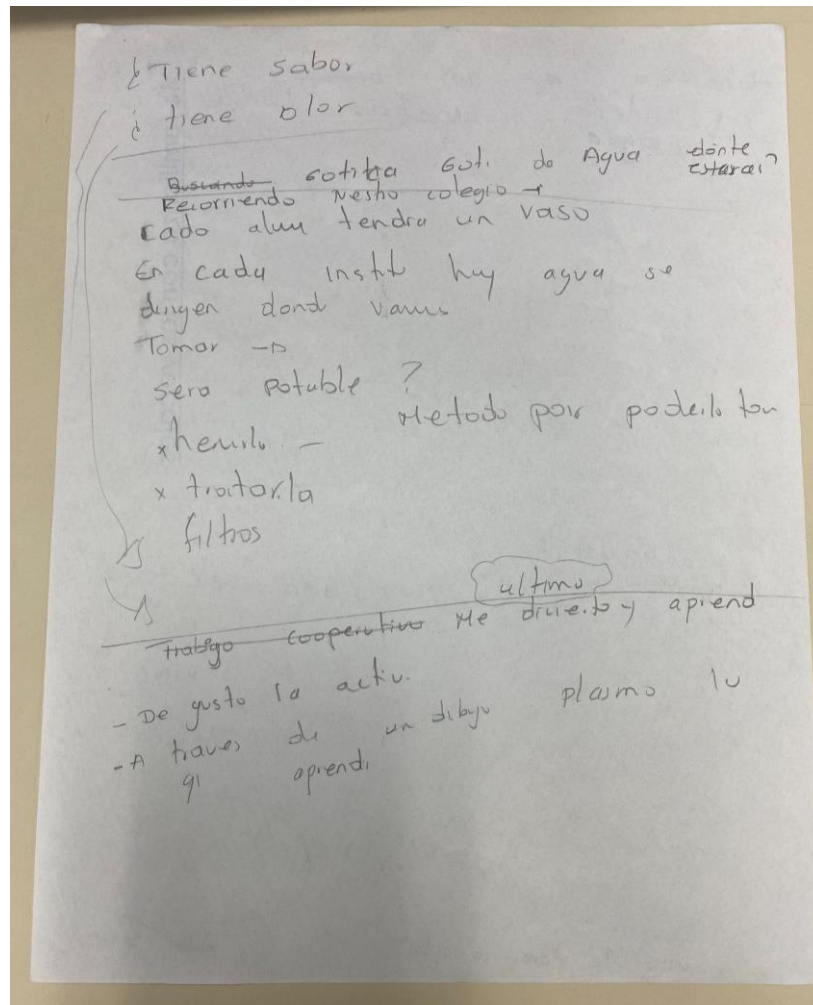 ¿ Tiene sabor
¿ tiene olor
Buscando Gotita Goti de Agua dónte estarai?
Recorriendo Nestro colegio
cado alum tendra un vaso
En cada instit huy agua se
dirigen dond vamus
Tomar →
sera potuble ?
Metodo por poderlo tom
x hervirlo -
x tratarla
filtros
ultimo
Trabajo cooperativo Me divierto y aprend
- De gusto la activ.
- A traves de un dibujo plasmo lo
q aprendi